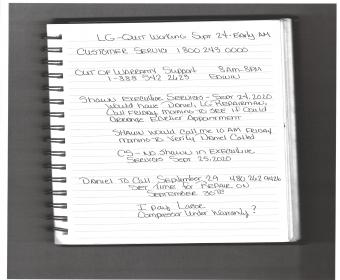 LG-Quit Working Sept 24-Early AM
Customer Service 1800 243 0000
Out of Warranty Support 8AM-8PM
1-888 542 2623 Edwin
Shawn Executive Services - Sept 24, 2020
Would have Daniel, LG Repairman,
Call Friday morning to see if could
Arrange Earlier Appointment
Shawn would call me 10 AM Friday
morning to Verify Daniel Called
CS - No Shawn in Executive
Services Sept 25, 2020
Daniel to Call September 29 480 262 9426
Set time for Repair on
September 30th
I Pay Labor
Compressor Under Warranty?